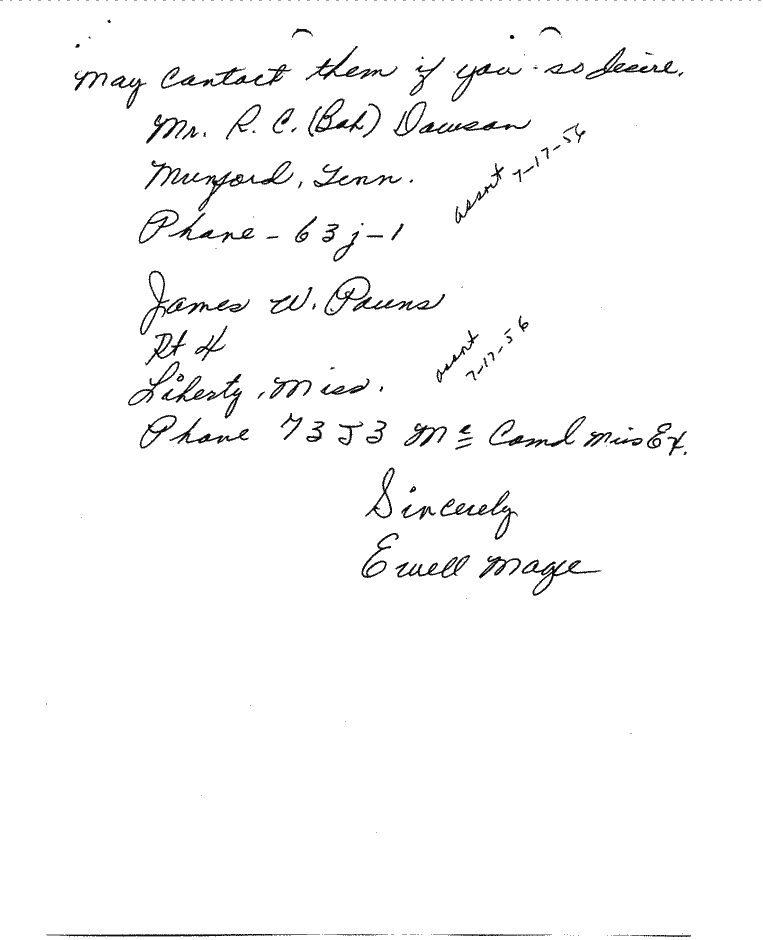 may contact them if you so desire.
Mr. R. C. (Bob) Dawson
Munford, Tenn.
assnt 7-17-56
Phone - 63j-1
James W. Pounds
Rt 4
assnt
7-17-56
Liberty, Miss.
Phone 73J3 Mc Comd Miss Ex.
Sincerely
Ewell Magee